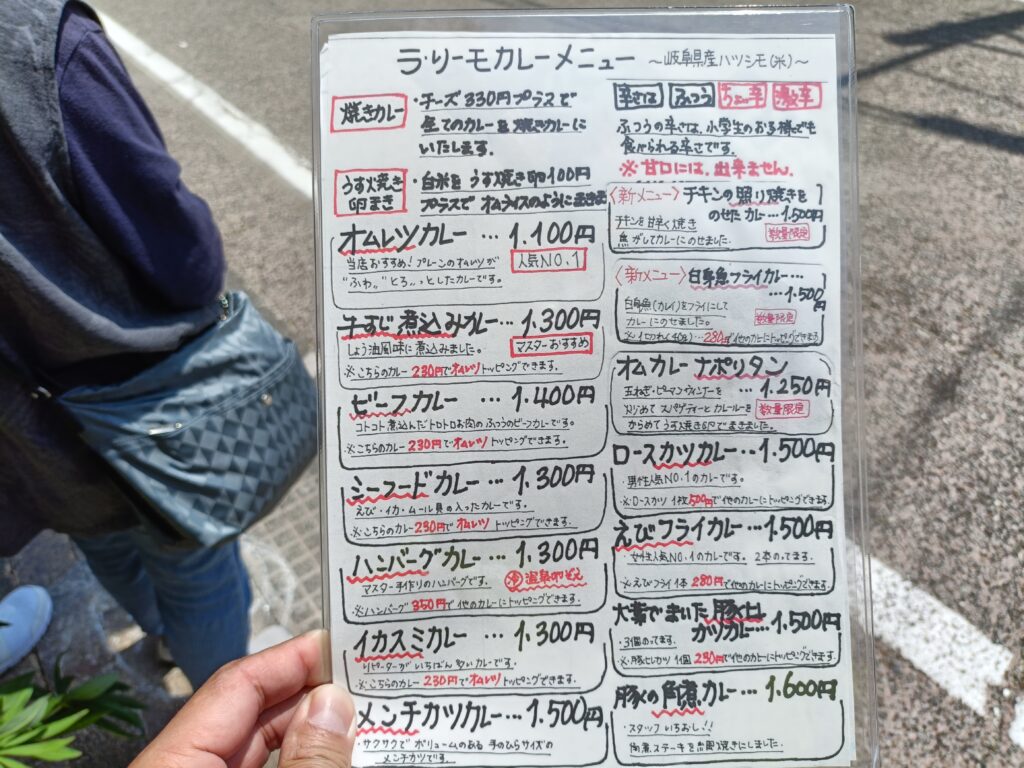 ラ・リーモカレーメニュー ～岐阜県産ハツシモ(米)～
焼きカレー
・チーズ330円プラスで
全てのカレーを焼きカレーに
いたします。
うす焼き
卵まき
・白米をうす焼き卵100円
プラスでオムライスのようにまきます
オムレツカレー … 1.100円
当店おすすめ! プレーンのオムレツが
人気NO.1
"ふわ〟とろ〟っとしたカレーです。
牛すじ煮込みカレー… 1.300円
しょう油風味に煮込みました。
マスターおすすめ
※こちらのカレー230円でオムレツトッピングできます。
ビーフカレー … 1.400円
コトコト煮込んだトロトロお肉のふつうのビーフカレーです。
※こちらのカレー230円でオムレツトッピングできます。
シーフードカレー … 1.300円
えび・イカ・ムール貝の入ったカレーです。
※こちらのカレー230円でオムレツトッピングできます。
ハンバーグカレー … 1.300円
マスター手作りのハンバーグです。
冷 温泉卵ぞえ
※ハンバーグ350円で他のカレーにトッピングできます。
イカスミカレー … 1.300円
リピーターがいちばん多いカレーです。
※こちらのカレー230円でオムレツトッピングできます。
メンチカツカレー… 1.500円
・サクサクでボリュームのある手のひらサイズの
メンチカツです。
辛さは ふつう ちょい辛 激辛
ふつうの辛さは、小学生のお子様でも
食べられる辛さです。
※甘口には、出来ません。
〈新メニュー〉チキンの照り焼きを
のせたカレー… 1.500円
チキンを甘辛く焼き
数量限定
焦がしてカレーにのせました。
〈新メニュー〉白身魚フライカレー…
… 1.500円
白身魚(カレイ)をフライにして
カレーにのせました。
数量限定
※1切れ(40g)…280円で他のカレーにトッピングできます
オムカレーナポリタン
玉ねぎ・ピーマン・ウィンナーを … 1.250円
炒めてスパゲティーとカレールーを
数量限定
からめてうす焼き卵でまきました。
ロースカツカレー… 1.500円
・男性人気NO.1のカレーです。
※ロースカツ1枚500円で他のカレーにトッピングできます
えびフライカレー… 1.500円
・女性人気NO.1のカレーです。2本のってます。
※えびフライ1本280円で他のカレーにトッピングできます。
大葉でまいた豚ヒレ
カツカレー… 1.500円
・3個のってます。
※豚ヒレカツ1個230円で他のカレーにトッピングできます。
豚の角煮カレー… 1.600円
・スタッフいちおし!!
角煮ステーキを照り焼きにしました。